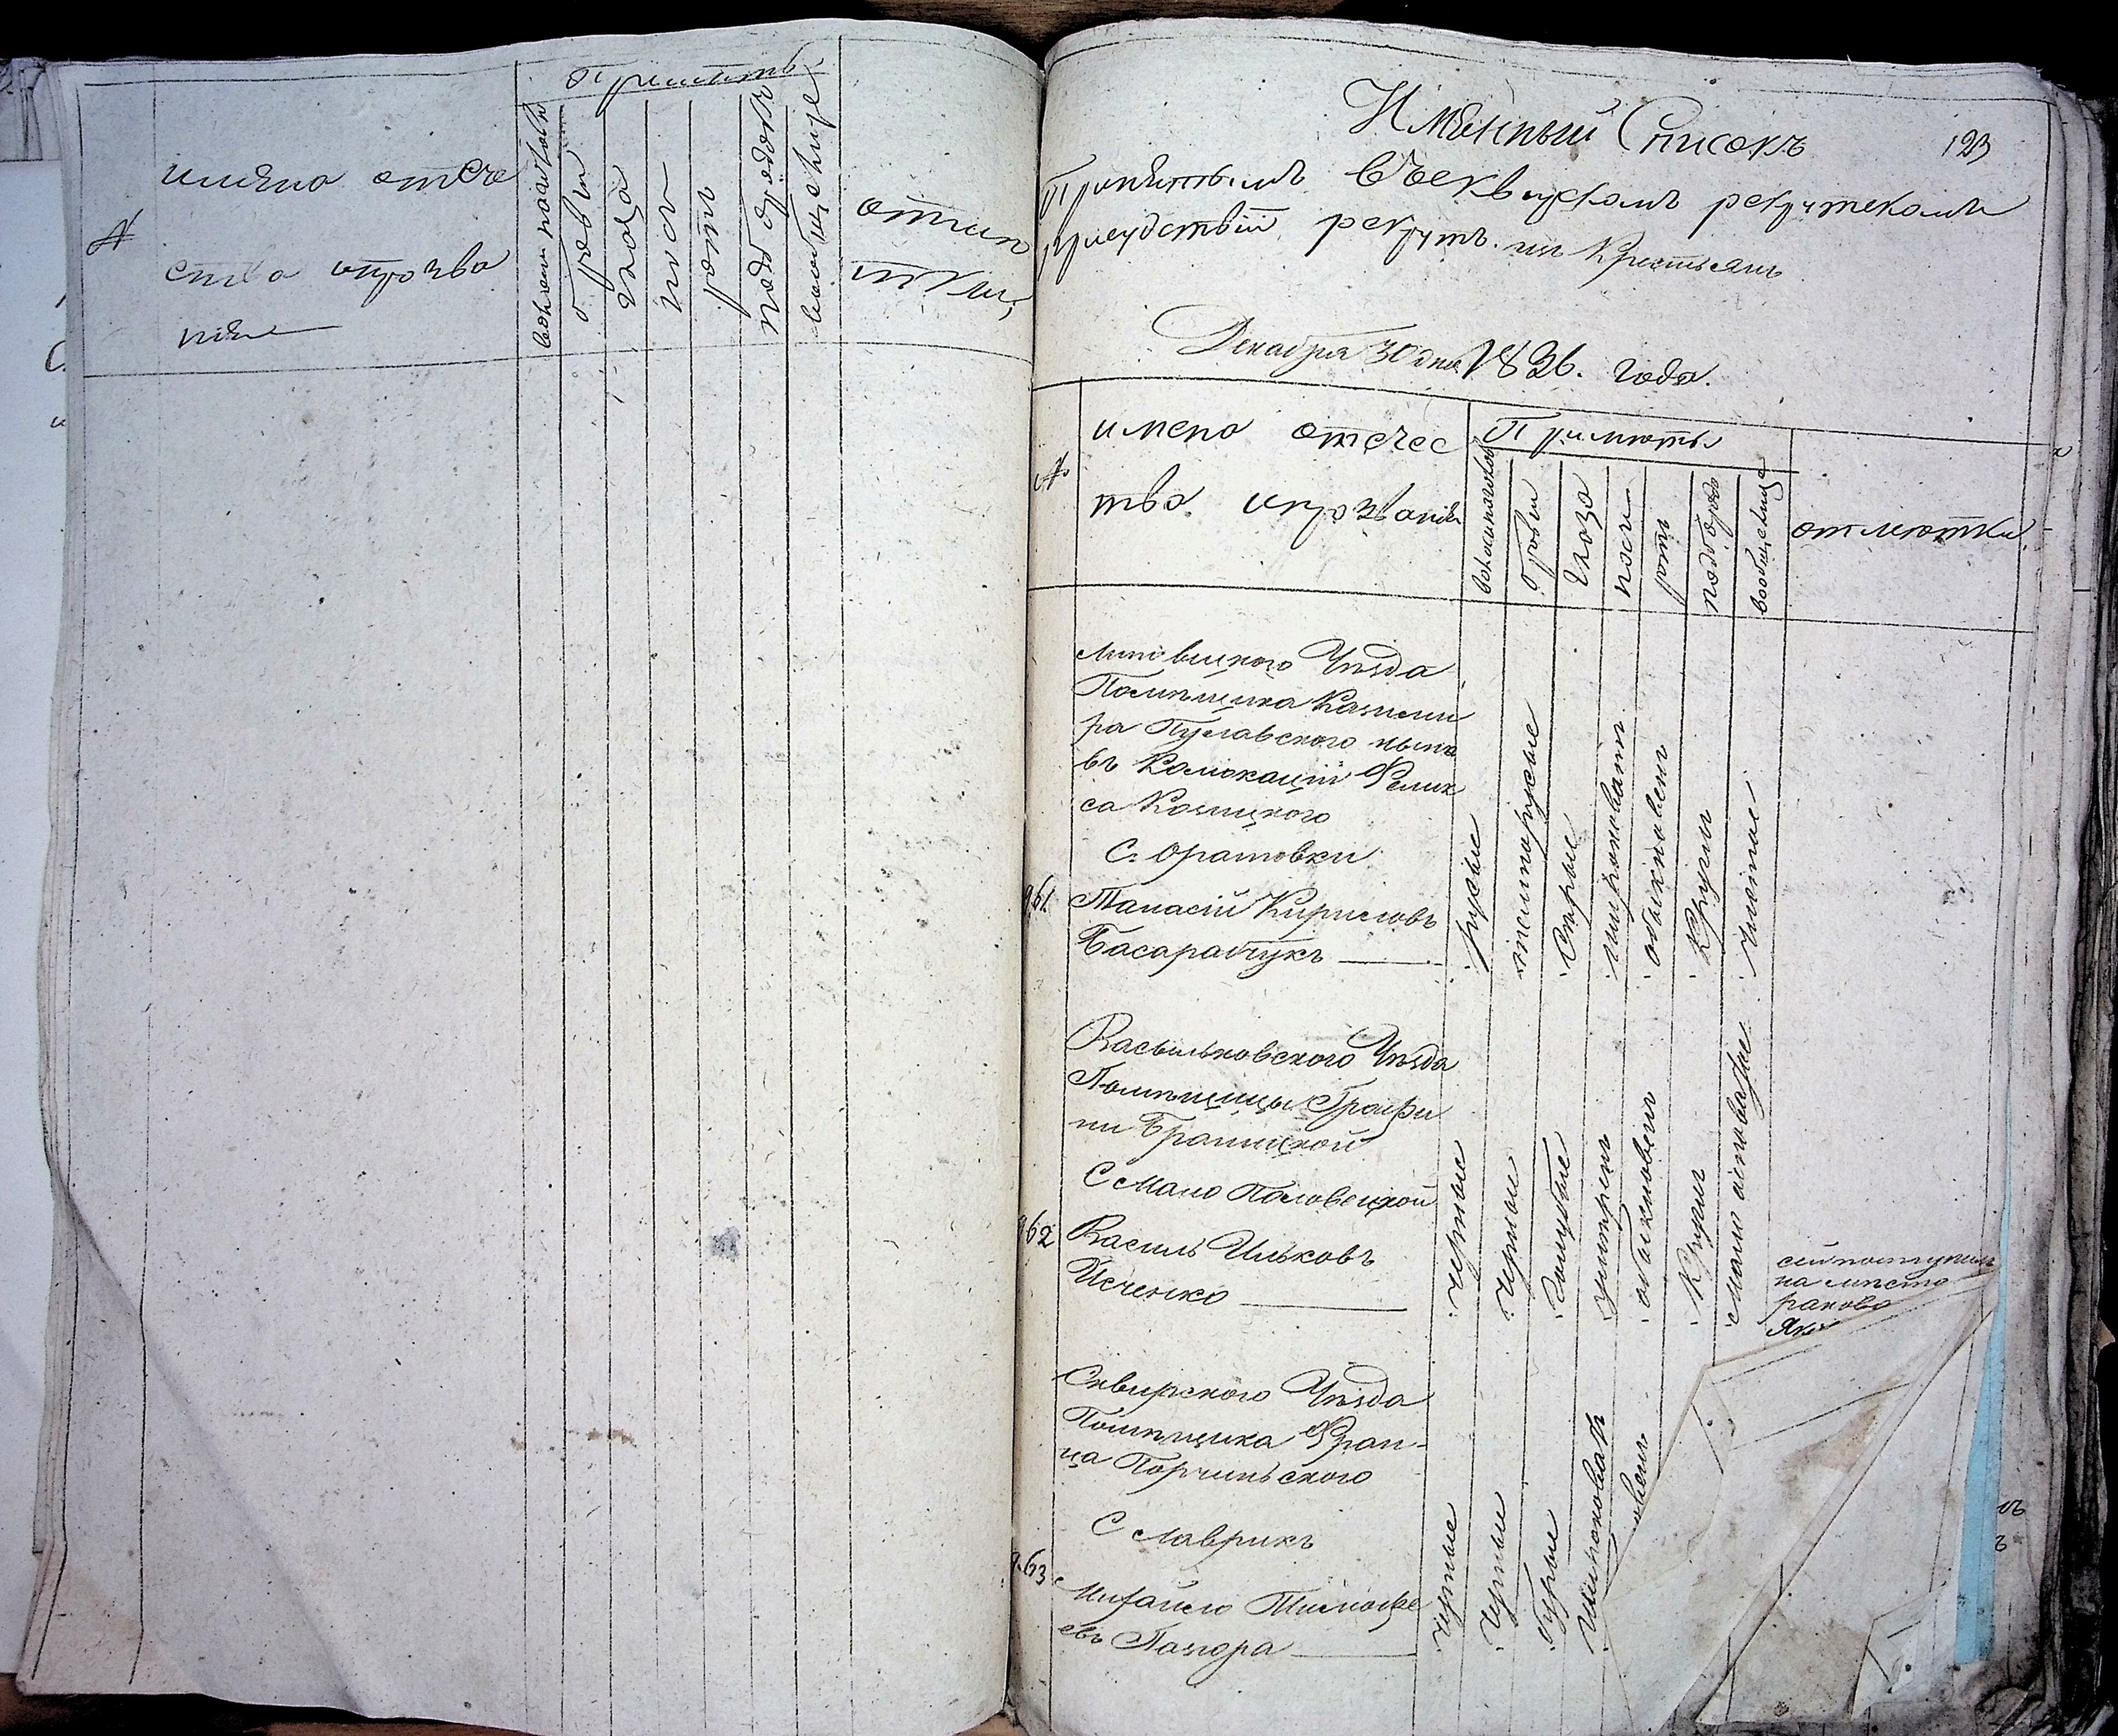 №
имяна отече
ства ипрозва
ния
Приметы
волосы на голове
брови
глаза
носъ
ротъ
подбородокъ
вообще лице
отме
тки
Имянный Списокъ
123
Принятымъ въсквирскомъ рекрутскомъ
присудствіи рекрутъ изъ Крестьянъ
Декабря 30 дня 1836. года.
№
имена отечес
тва ипрозванія
Приметы
брови
глаза
носъ
ротъ
подбород
вообще лице
отметки
Липовицкого Уѣзда
Помѣщика Казими
ра Пулавского ныне
въ Колокаціи Феликс
са Козицкого
С. Оратовки
961
Танасій Кириловъ
Басарабчукъ
русые
темнорусые
Серые
широковатъ
обыкновенъ
Круглъ
чистое
Васильковского Уѣзда
Помѣщицы Графи
ни Браницкой
С Мало Половецкой
962
Василь Ильковъ
Исченко
черные
черные
Голубые
умѣренъ
обыкновенъ
Круглъ
сей поступилъ
на место
Сквирского Уѣзда
Помѣщика Фран-
ца Порчинского
С Лаврикъ
963
Михайло Тимофе
евъ Пахора
черные
черные
бурые
Широковатъ